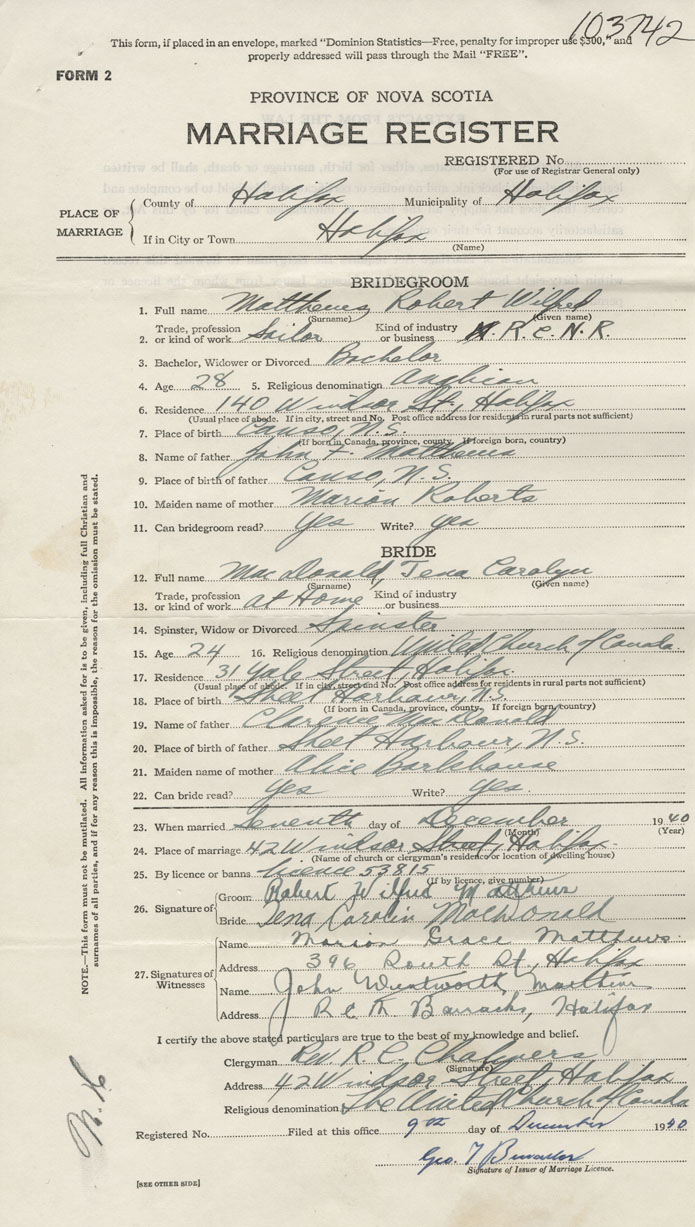 103742
This form, if placed in an envelope, marked "Dominion Statistics—Free, penalty for improper use $300," and
properly addressed will pass through the Mail "FREE".
FORM 2
PROVINCE OF NOVA SCOTIA
MARRIAGE REGISTER
REGISTERED No.
(For use of Registrar General only)
PLACE OF MARRIAGE
County of Halifax Municipality of Halifax
If in City or Town Halifax
(Name)
BRIDEGROOM
1. Full name Matthews, Robert Wilfred
(Surname) (Given name)
2. Trade, profession or kind of work Sailor Kind of industry or business R.C.N.R.
3. Bachelor, Widower or Divorced Bachelor
4. Age 28 5. Religious denomination Anglican
6. Residence 140 Windsor St., Halifax
(Usual place of abode. If in city, street and No. Post office address for residents in rural parts not sufficient)
7. Place of birth Canso, N.S.
(If born in Canada, province, county. If foreign born, country)
8. Name of father John F. Matthews
9. Place of birth of father Canso, N.S.
10. Maiden name of mother Marion Roberts
11. Can bridegroom read? yes Write? yes
BRIDE
12. Full name MacDonald, Tena Carolyn
(Surname) (Given name)
13. Trade, profession or kind of work at Home Kind of industry or business
14. Spinster, Widow or Divorced Spinster
15. Age 24 16. Religious denomination United Church of Canada.
17. Residence 31 Yale Street, Halifax
(Usual place of abode. If in city, street and No. Post office address for residents in rural parts not sufficient)
18. Place of birth Sheet Harbour, N.S.
(If born in Canada, province, county. If foreign born, country)
19. Name of father Clarence MacDonald
20. Place of birth of father Sheet Harbour, N.S.
21. Maiden name of mother Alice Barkhouse
22. Can bride read? yes Write? yes.
23. When married Seventh day of December 1940
(Month) (Year)
24. Place of marriage 42 Windsor Street, Halifax
(Name of church or clergyman's residence or location of dwelling house)
25. By licence or banns licence 53815
(If by licence, give number)
26. Signature of
Groom Robert Wilfred Matthews
Bride Tena Carolin MacDonald
27. Signatures of Witnesses
Name Marion Grace Matthews
Address 396 South St, Halifax
Name John Wentworth
Address Barracks, Halifax
I certify the above stated particulars are true to the best of my knowledge and belief.
Clergyman Rev. R. C. Chalmers
(Signature)
Address 42 Windsor Street, Halifax
Religious denomination The United Church of Canada
Registered No. Filed at this office 9th day of December 1940
Geo. T
Signature of Issuer of Marriage Licence.
[SEE OTHER SIDE]
NOTE.—This form must not be mutilated. All information asked for is to be given, including full Christian and
surnames of all parties, and if for any reason this is impossible, the reason for the omission must be stated.